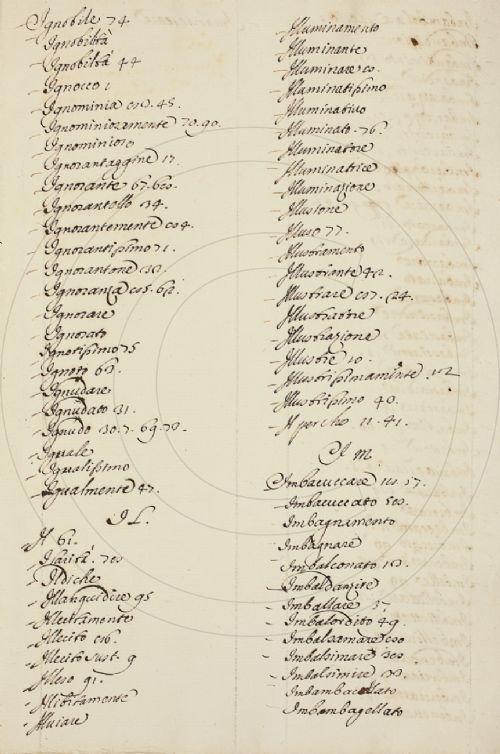 Ignobile 74
Ignobiltà
Ignobiltà 44
Ignocco
Ignominia
Ignominiosamente 70.90.
Ignominioso
Ignorantaggine 17.
Ignorante
Ignorantello 34.
Ignorantemente
Ignorantissimo 71.
Ignorantone
Ignoranza
Ignorare
Ignorato
Ignotissimo 75
Ignoto
Ignudare
Ignudato 31.
Ignudo
Iguale
Igualissimo
Igualmente 47.
IL.
Il 61.
Ilarità
Il di che
Illanguidire 95
Illecitamento
Illecito
Illecito sust. 9
Illeso 91.
Illibatamente
Illuiare
Illuminamento
Illuminante
Illuminare
Illuminatissimo
Illuminativo
Illuminato. 76.
Illuminatore
Illuminatrice
Illuminazione
Illusione
Illuso 77.
Illustramento
Illustrante 42.
Illustrare
Illustratore
Illustrazione
Illustre 10.
Illustrissimamente. 112
Illustrissimo 40.
Il perche 11. 41.
IM.
Imbacuccare
Imbacuccato
Imbagnamento
Imbagnare
Imbalconato
Imbaldanzire
Imballare
Imbalordito 49.
Imbalsamare
Imbalsimare
Imbalsimire
Imbambacollato
Imbambagellato